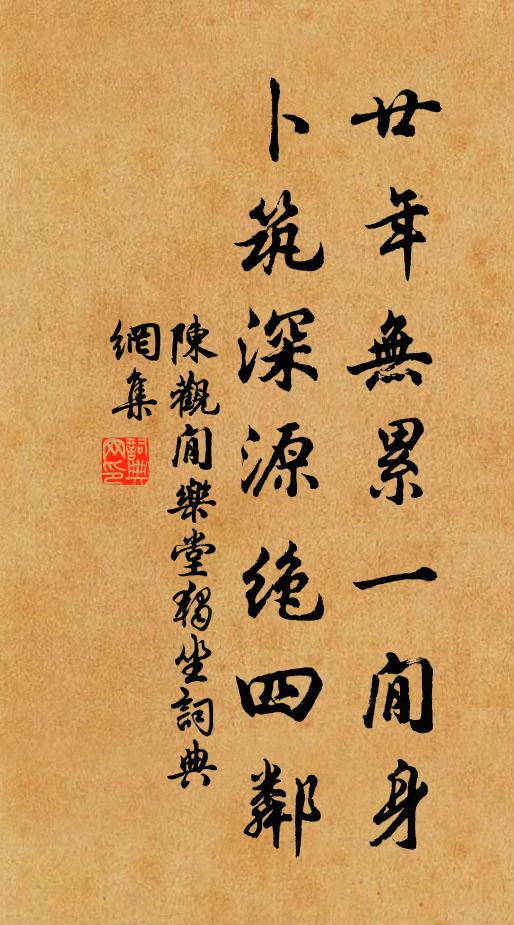 廿年無累一閒身
卜筑深源絶四鄰
陳觀閒樂堂獨坐詞典
網集
詞典
网印